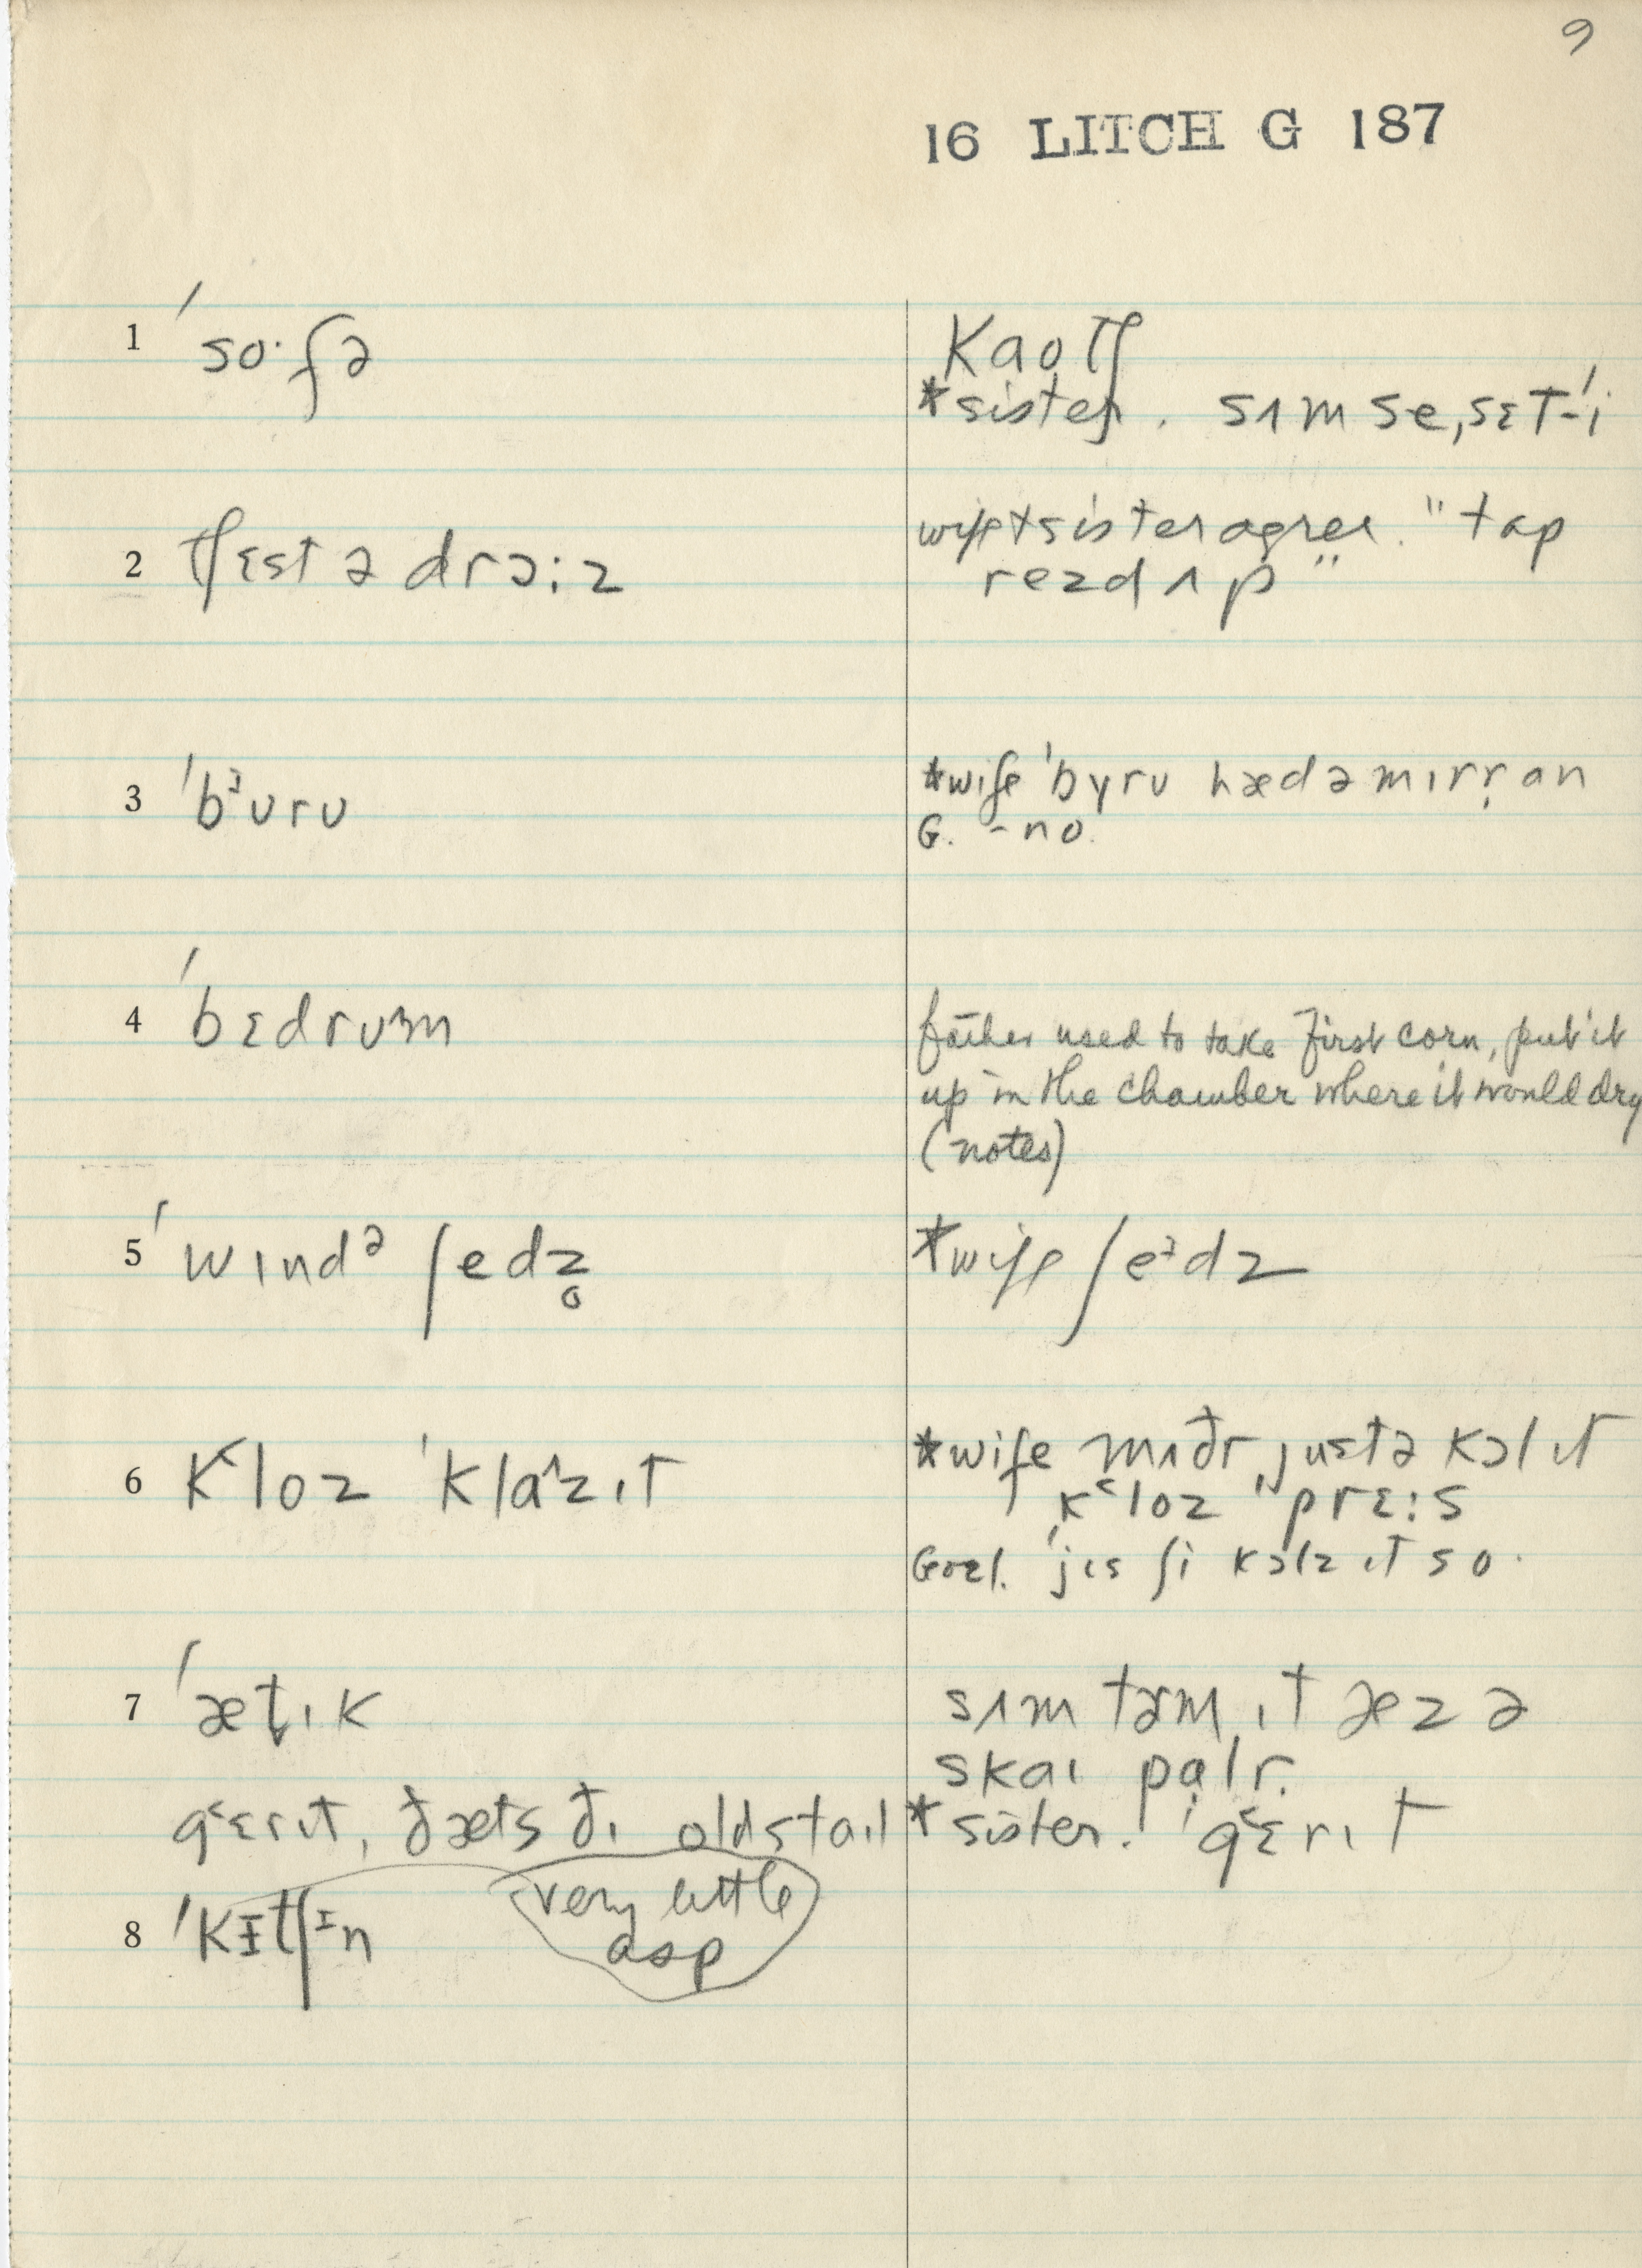 9
16 LITCH G 187
1 ˈso·fə
kaʊtʃ
*sister. sʌm se, sɛt-ˈi
2 tʃɛst ə drɔ:z
wife + sister agree. "tap
rezd ʌp"
3 ˈbᶾʊrʊ
*wife ˈbyrʊ hæd ə mɪrṛ an
G. - no.
4 ˈbɛdrʊᵚm
father used to take first corn, put it
up in the chamber where it would dry
(notes)
5 ˈwɪndᵊ ʃedz̥
*wife ʃeᶾdz
6 kʿloz ˈklaˆzɪt
*wife mʌðr justə kɔl ɪt
kʿloz ˈprɛ:s
Goel. ˈjɪs ʃi kɔlz ɪt so.
7 ˈæt̬ɪk
sʌm tɚm ɪt æz ə
skaɪ palr.
gʿɛrɪt, ðæts ðɪ old staɪl
*sister. ˈgʿɛrɪt
8 ˈkɪtʃᶦn
very little
asp